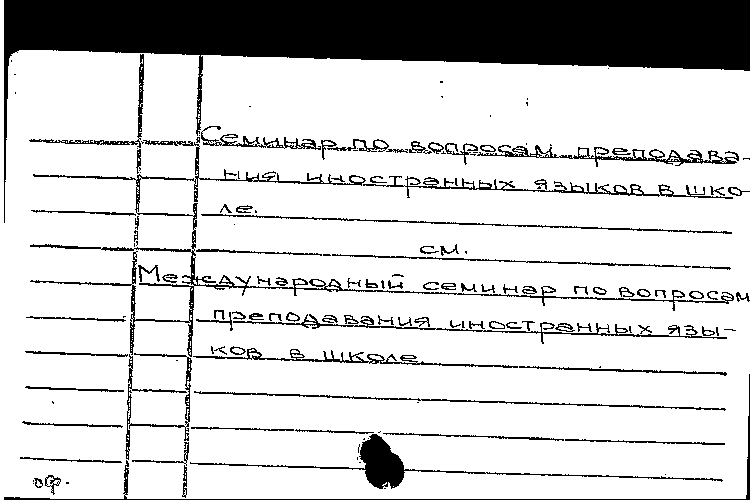 Семинар по вопросам преподава-
ния иностранных языков в шко-
ле.
см.
Международный семинар по вопросам
преподавания иностранных язы-
ков в школе.
оф.